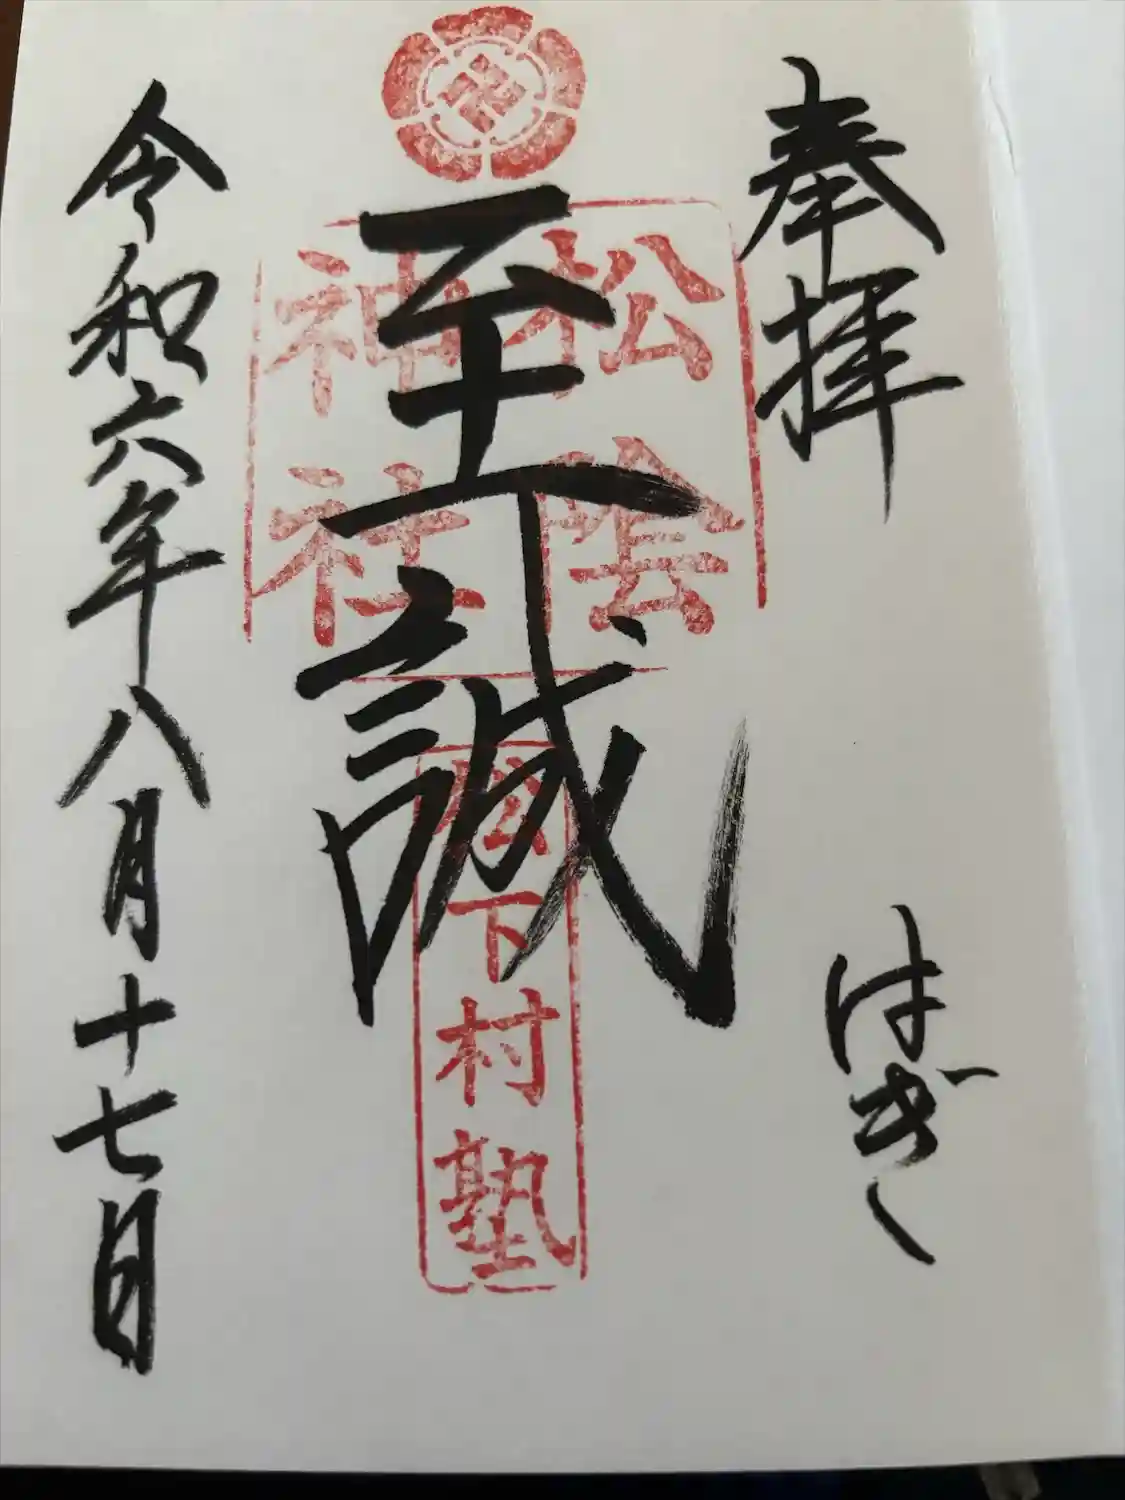 奉拝
はぎし
至誠
松陰
神社
松下村塾
令和六年八月十七日